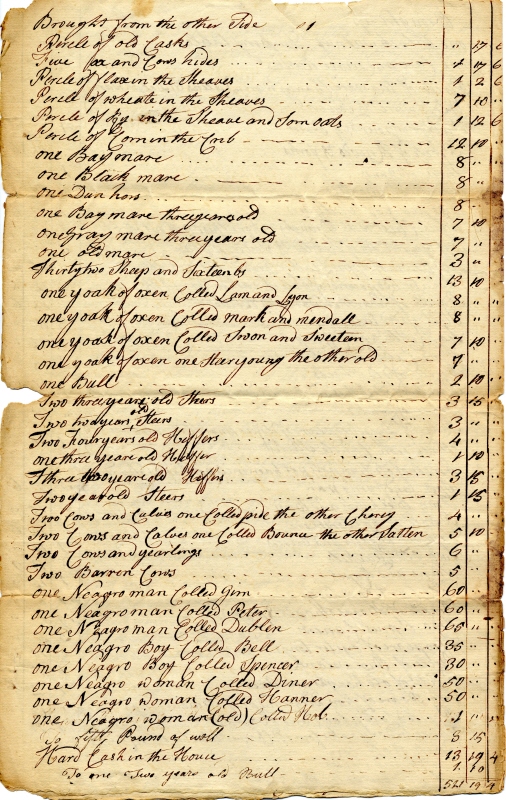 Brought from the other Side
Percle of old Casks " 17 6
Five ox and Cows hides 4 17 6
Percle of flax in the Sheaves 1 2 6
Percle of wheate in the Sheaves 7 10 "
Percle of Rye in the Sheave and Som oats 1 12 6
Percle of Corn in the Crib 12 10 "
one Bay mare 8 "
one Black mare 8 "
one Dun hors 8 "
one Bay mare three years old 7 10
one Gray mare three years old 7 "
one old mare 3 "
Thirty two Sheep and Sixteen 13 10
one yoak of oxen Colled Lam and Lyon 8 " "
one yoak of oxen Colled mark and mendall 8 " "
one yoak of oxen Colled Swon and Sweeten 7 10
one yoak of oxen one Star young the other old 7 "
one Bull 2 10
Two three year old Steers 3 15
Two two years old Steers 3 "
Two four years old Heffers 4 "
one three year old Heffer 1 10
Three two year old Heffers 3 15
Two year old Steers 1 15
Two Cows and Calves one Colled pide the other Cherey 4 "
Two Cows and Calves one Colled Bounce the other 5 10
Two Cows and yearlings 6 "
Two Barren Cows 5 "
one Neagro man Colled Gim 60 "
one Neagro man Colled Peter 60 "
one Neagro man Colled Dublen 65 "
one Neagro Boy Colled Bell 35 "
one Neagro Boy Colled Spencer 30 "
one Negro woman Colled Diner 50 "
one Negro woman Colled Hanner 50 "
one Neagro woman (old) Colled 1 " "
To fifty Pound of woll 3 15
Hard Cash in the House 13 19 4
To one Two years old Bull 1 10
541 19